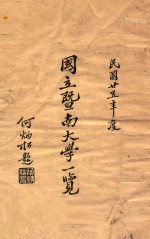 民國廿五年度
國立暨南大學一覽
何炳松題